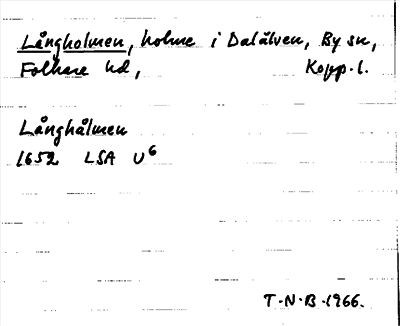 Långholmen, holme i Dalälven, By sn,
Folkare hd, Kopp. l.
Långhålmen
1652 LSA U⁶
T.N.B. 1966.